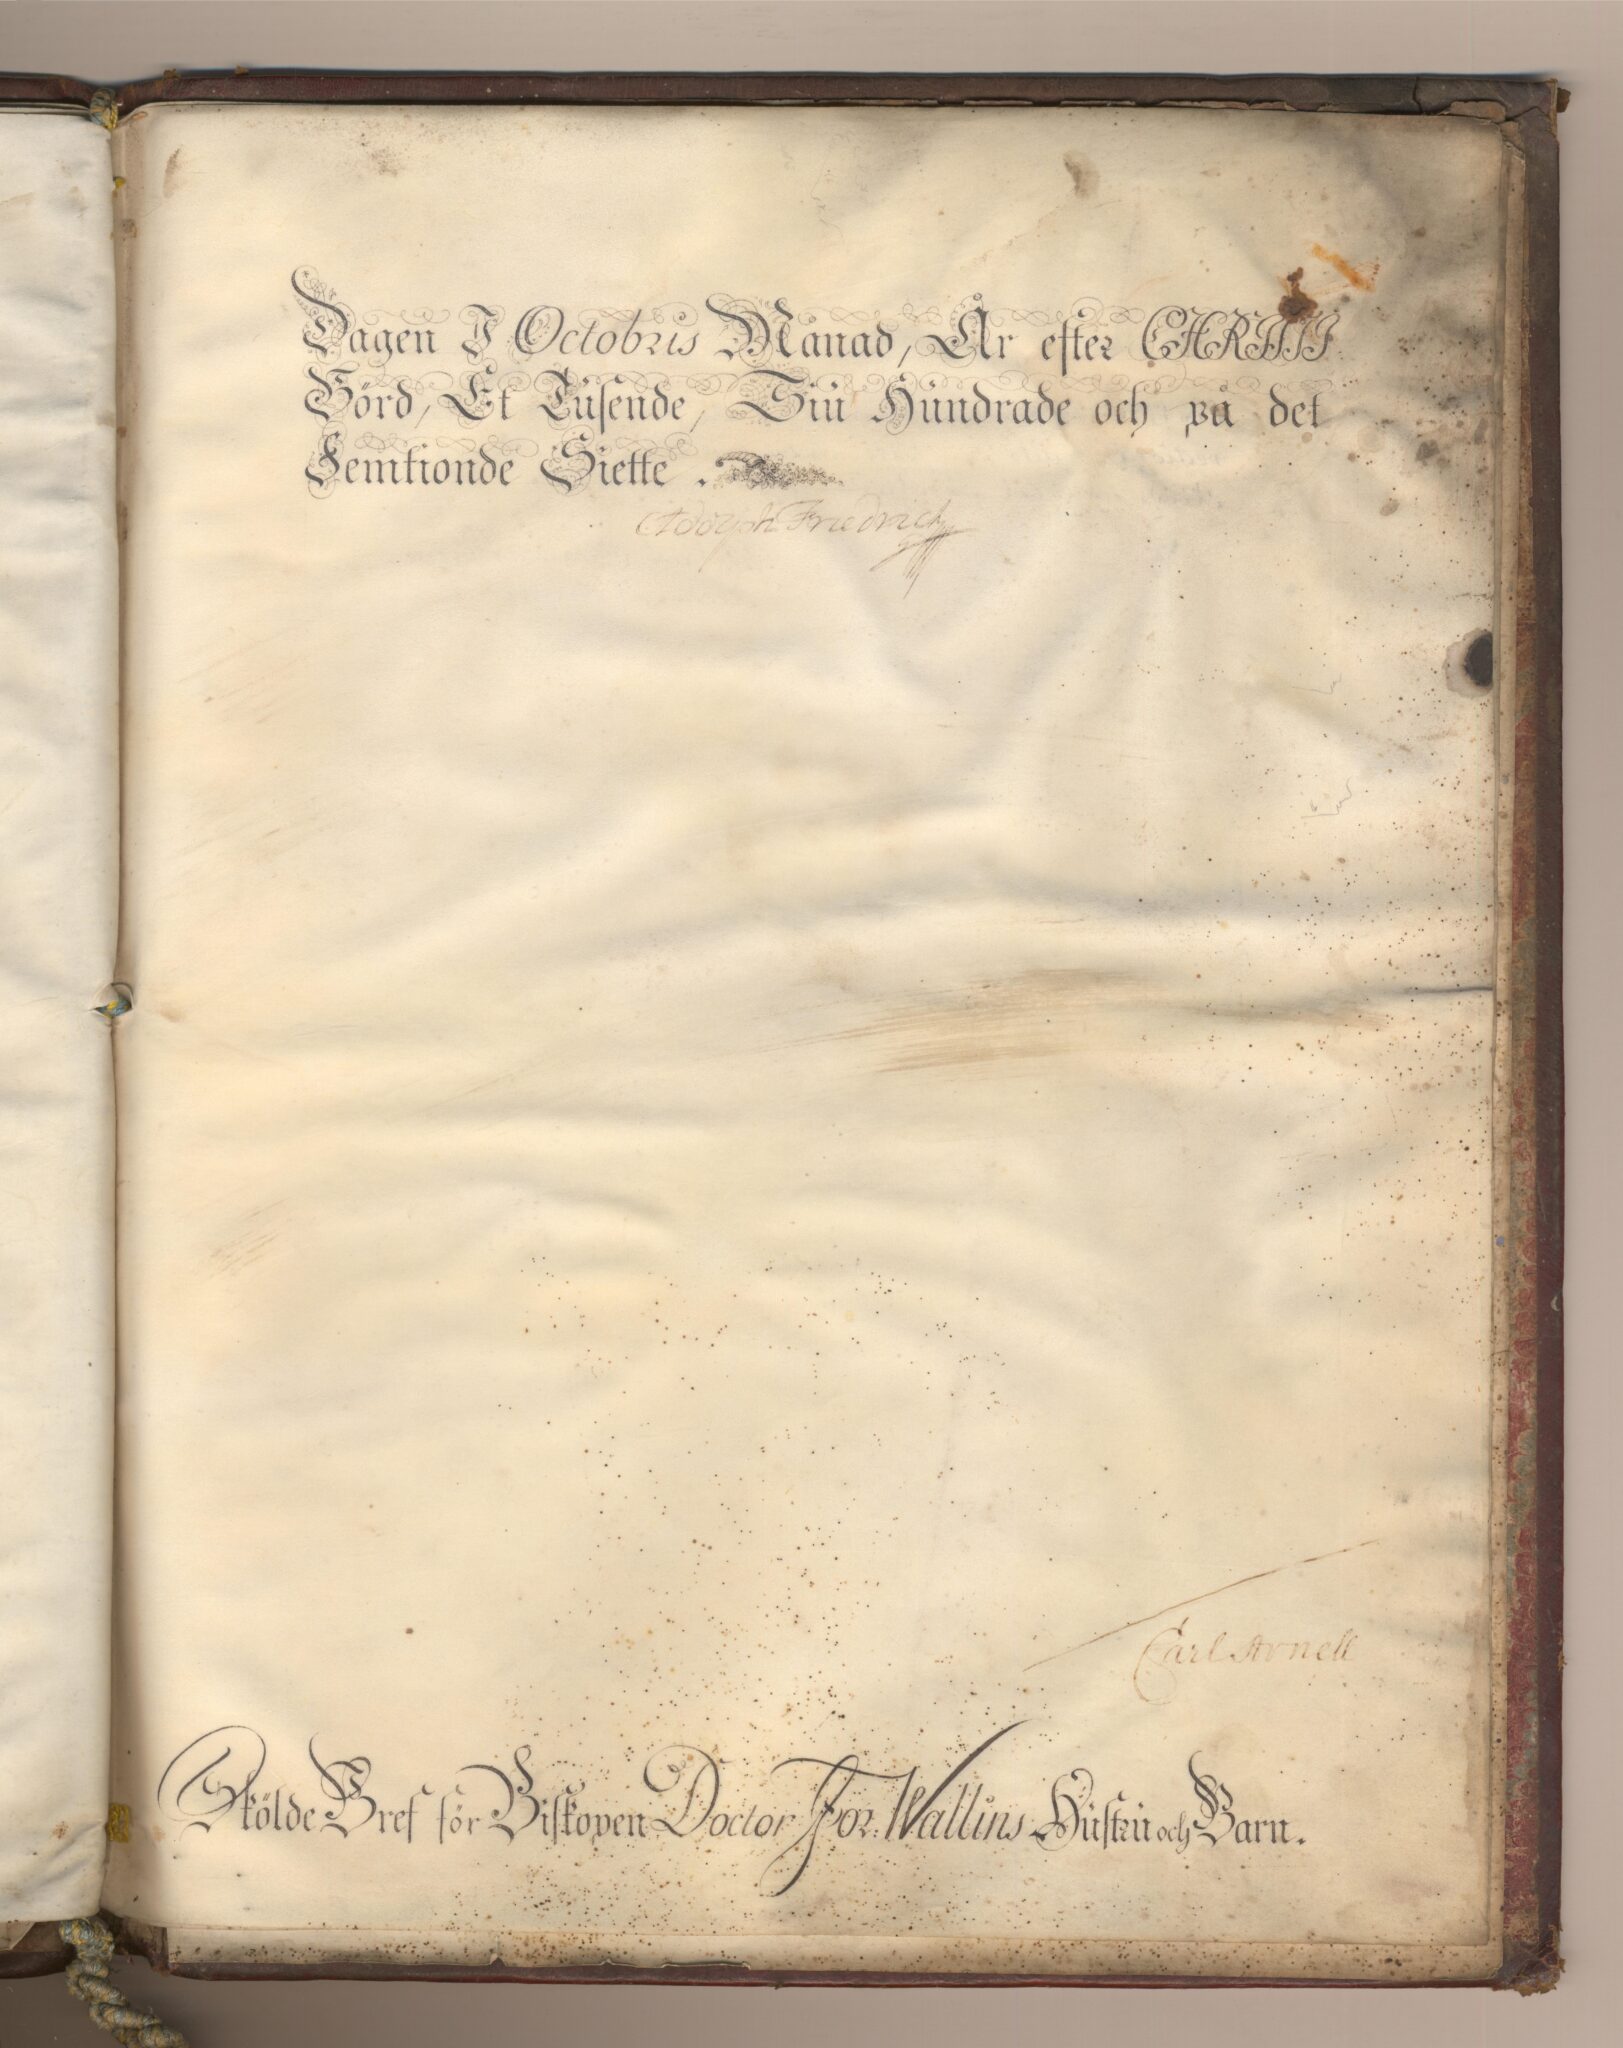 Dagen I Octobris Månad, År efter CHRISTI
Börd, Et Tusende, Siu Hundrade och på det
Femtionde Siette.
Adolph Friedrich
Carl Arnell
Skölde Bref för Biskopen Doctor Jor. Wallins Hustru och Barn.